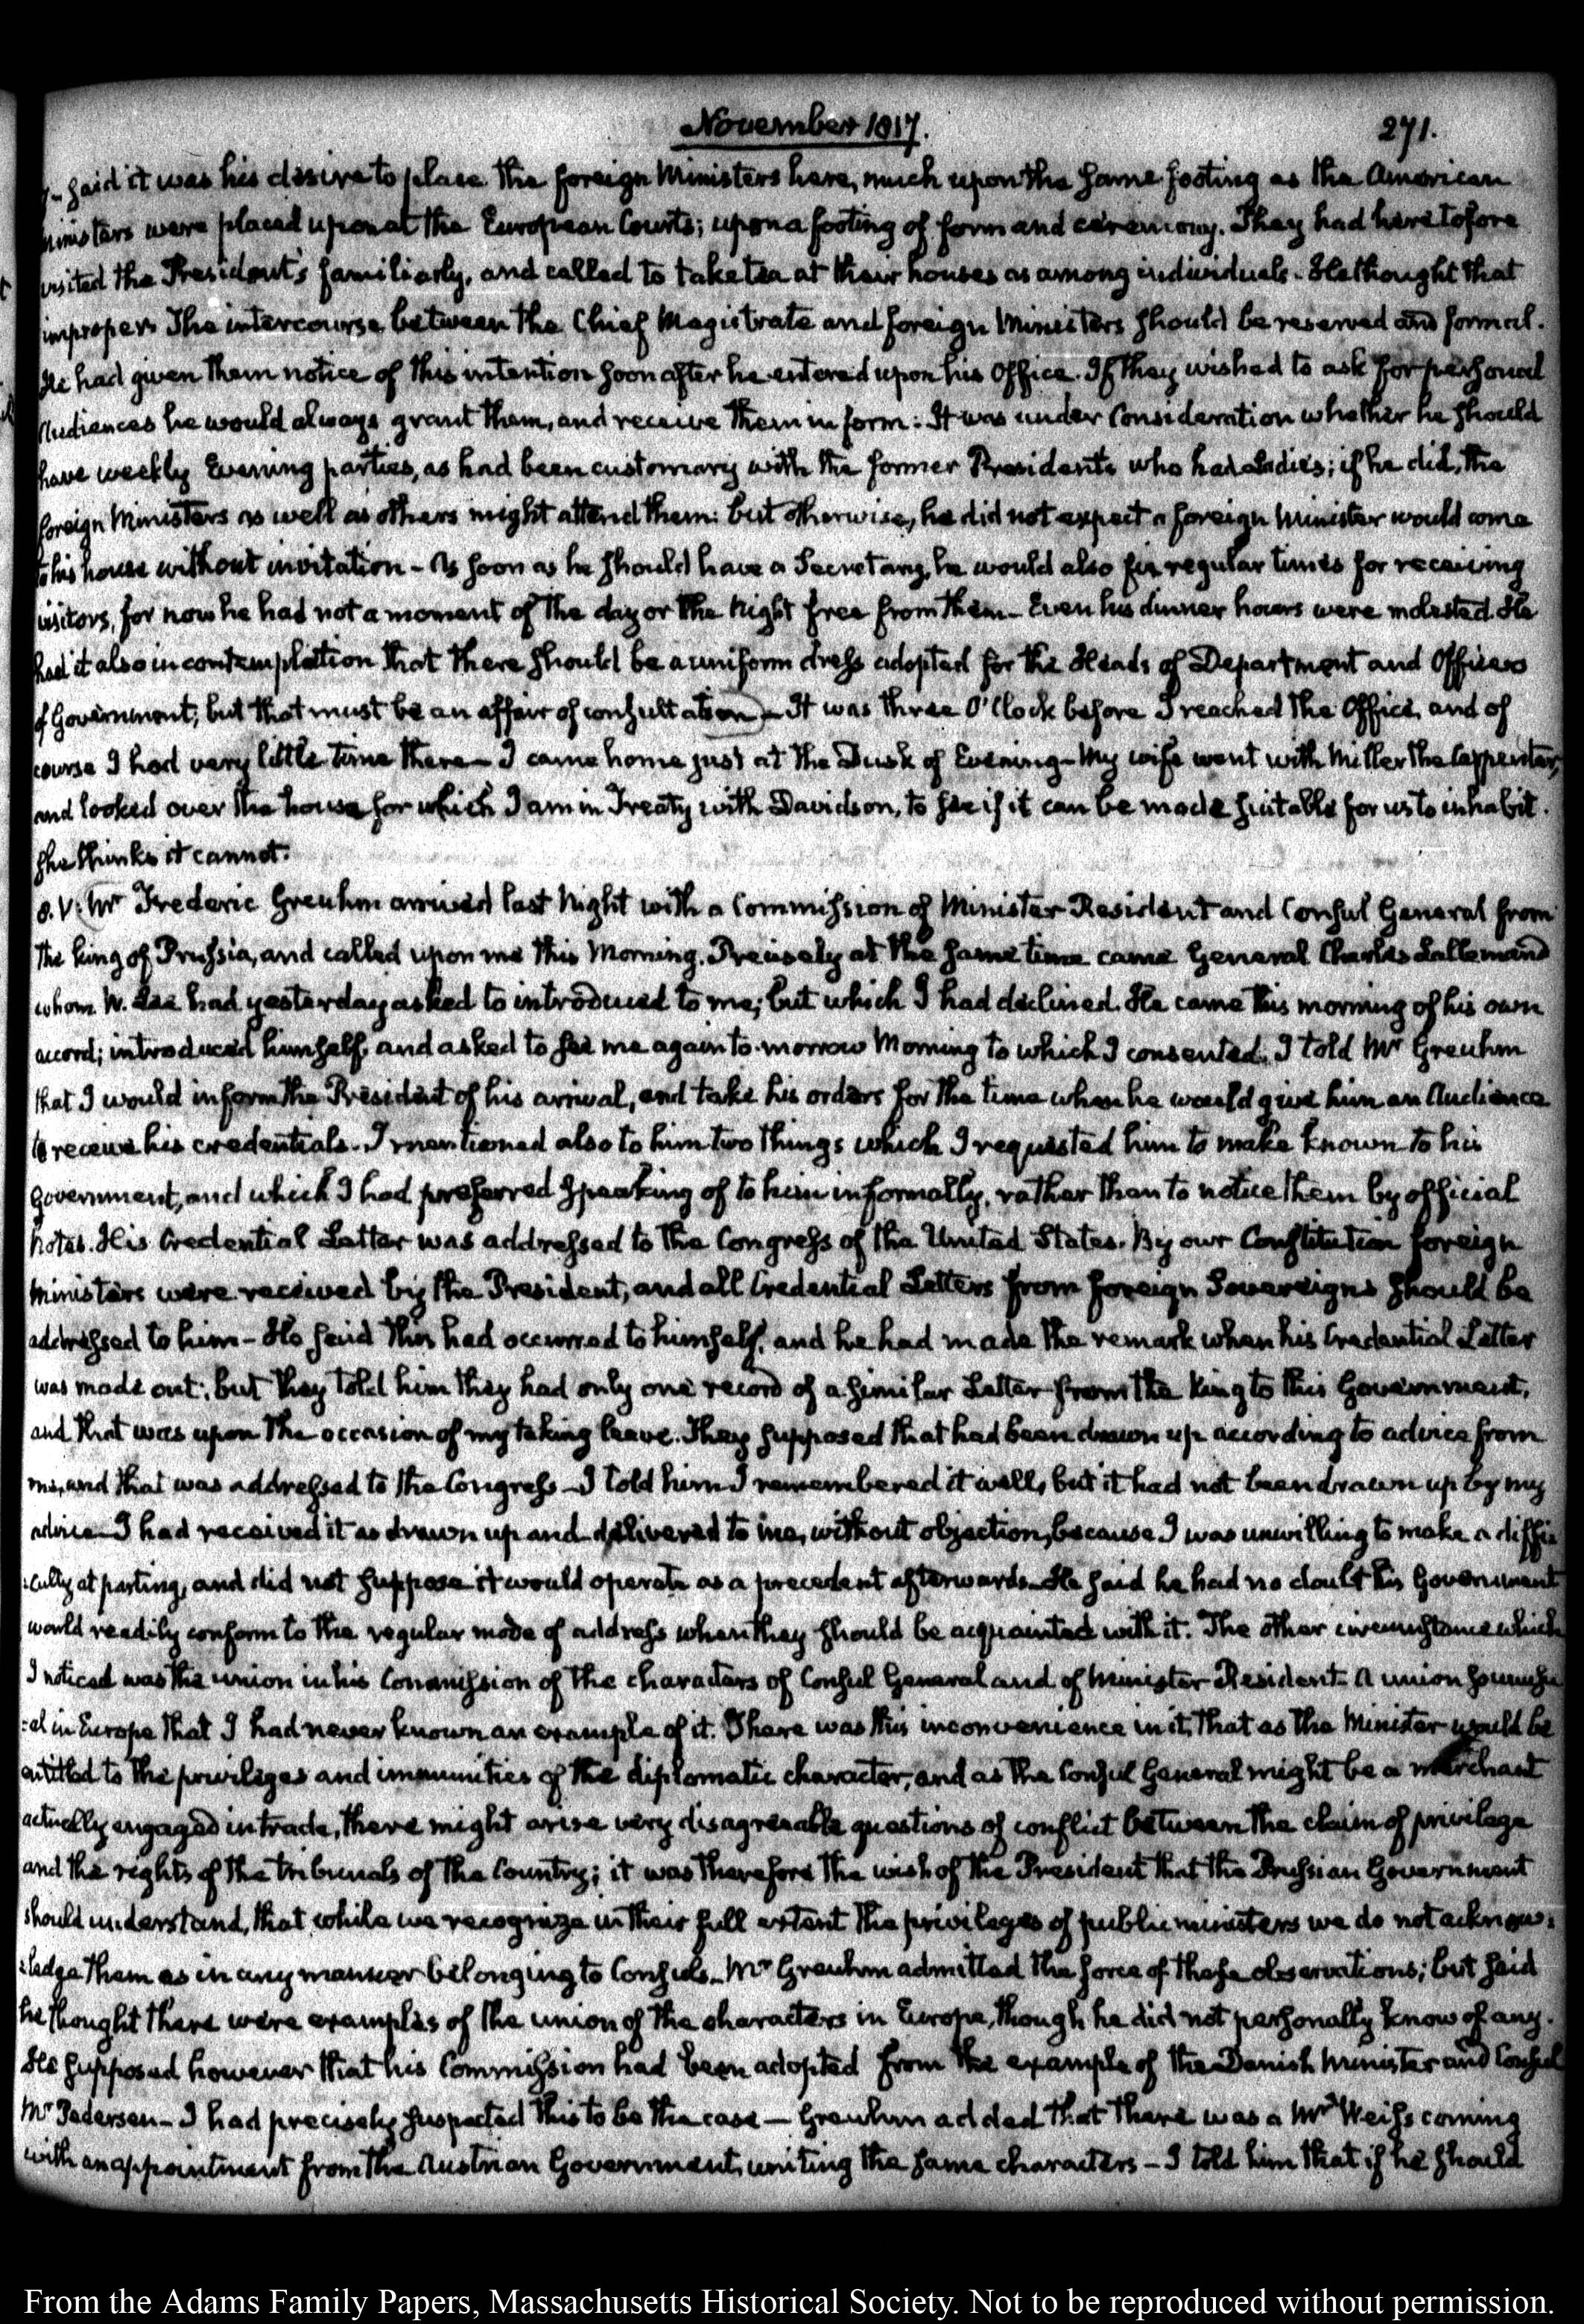 November 1817.
271.
7- said it was his desire to place the foreign Ministers here, much upon the same footing as the American
Ministers were placed upon at the European Courts; upon a footing of form and ceremony. They had heretofore
visited the President's familiarly, and called to take tea at their houses as among individuals. He thought that
improper. The intercourse between the Chief Magistrate and foreign Ministers should be reserved and formal.
He had given them notice of this intention soon after he entered upon his Office. If they wished to ask for personal
Audiences he would always grant them, and receive them in form: It was under Consideration whether he should
have weekly Evening parties, as had been customary with the former Presidents who had Ladies; if he did, the
foreign Ministers as well as others might attend them: but otherwise, he did not expect a foreign Minister would come
to his house without invitation - As soon as he should have a Secretary, he would also fix regular times for receiving
visitors, for now he had not a moment of the day or the Night free from them - Even his dinner hours were molested. He
had it also in contemplation that there should be a uniform dress adopted for the Heads of Department and Officers
of Government; but that must be an affair of consultation - It was three O'Clock before I reached the Office, and of
course I had very little time there - I came home just at the Dusk of Evening - My wife went with Miller the Carpenter,
and looked over the house for which I am in Treaty with Davidson, to see if it can be made suitable for us to inhabit.
She thinks it cannot.
8. V: Mr Frederic Greuhm arrived last Night with a Commission of Minister Resident and Consul General from
the king of Prussia, and called upon me this Morning. Precisely at the same time came General Charles Lallemand
whom W. Lee had yesterday asked to introduced to me; but which I had declined. He came this morning of his own
accord; introduced himself, and asked to see me again to-morrow Morning to which I consented. I told Mr Greuhm
that I would inform the President of his arrival, and take his orders for the time when he would give him an Audience
to receive his credentials. I mentioned also to him two things which I requested him to make known to his
Government, and which I had preferred speaking of to him informally, rather than to notice them by official
Notes. His Credential Letter was addressed to the Congress of the United States. By our Constitution foreign
Ministers were received by the President, and all Credential Letters from foreign Sovereigns should be
addressed to him - He said this had occurred to himself, and he had made the remark when his Credential Letter
was made out; but they told him they had only one record of a similar Letter from the King to this Government,
and that was upon the occasion of my taking leave. They supposed that had been drawn up according to advice from
me, and that was addressed to the Congress - I told him I remembered it well, but it had not been drawn up by my
advice - I had received it as drawn up and delivered to me, without objection, because I was unwilling to make a diffi
:culty at parting, and did not suppose it would operate as a precedent afterwards. He said he had no doubt his Government
would readily conform to the regular mode of address when they should be acquainted with it. The other circumstance which
I noticed was the union in his Commission of the characters of Consul General and of Minister Resident - A union so unusu
:al in Europe that I had never known an example of it. There was this inconvenience in it, that as the Minister would be
entitled to the privileges and immunities of the diplomatic character, and as the Consul General might be a merchant
actually engaged in trade, there might arise very disagreeable questions of conflict between the claim of privilege
and the rights of the tribunals of the Country; it was therefore the wish of the President that the Prussian Government
should understand, that while we recognize in their full extent the privileges of public ministers we do not acknow:
:ledge them as in any manner belonging to Consuls - Mr Greuhm admitted the force of these observations; but said
he thought there were examples of the union of the characters in Europe, though he did not personally know of any.
He supposed however that his Commission had been adopted from the example of the Danish Minister and Consul
Mr Pedersen - I had precisely suspected this to be the case - Greuhm added that there was a Mr Weiss coming
with an appointment from the Austrian Government, uniting the same characters - I told him that if he should
From the Adams Family Papers, Massachusetts Historical Society. Not to be reproduced without permission.